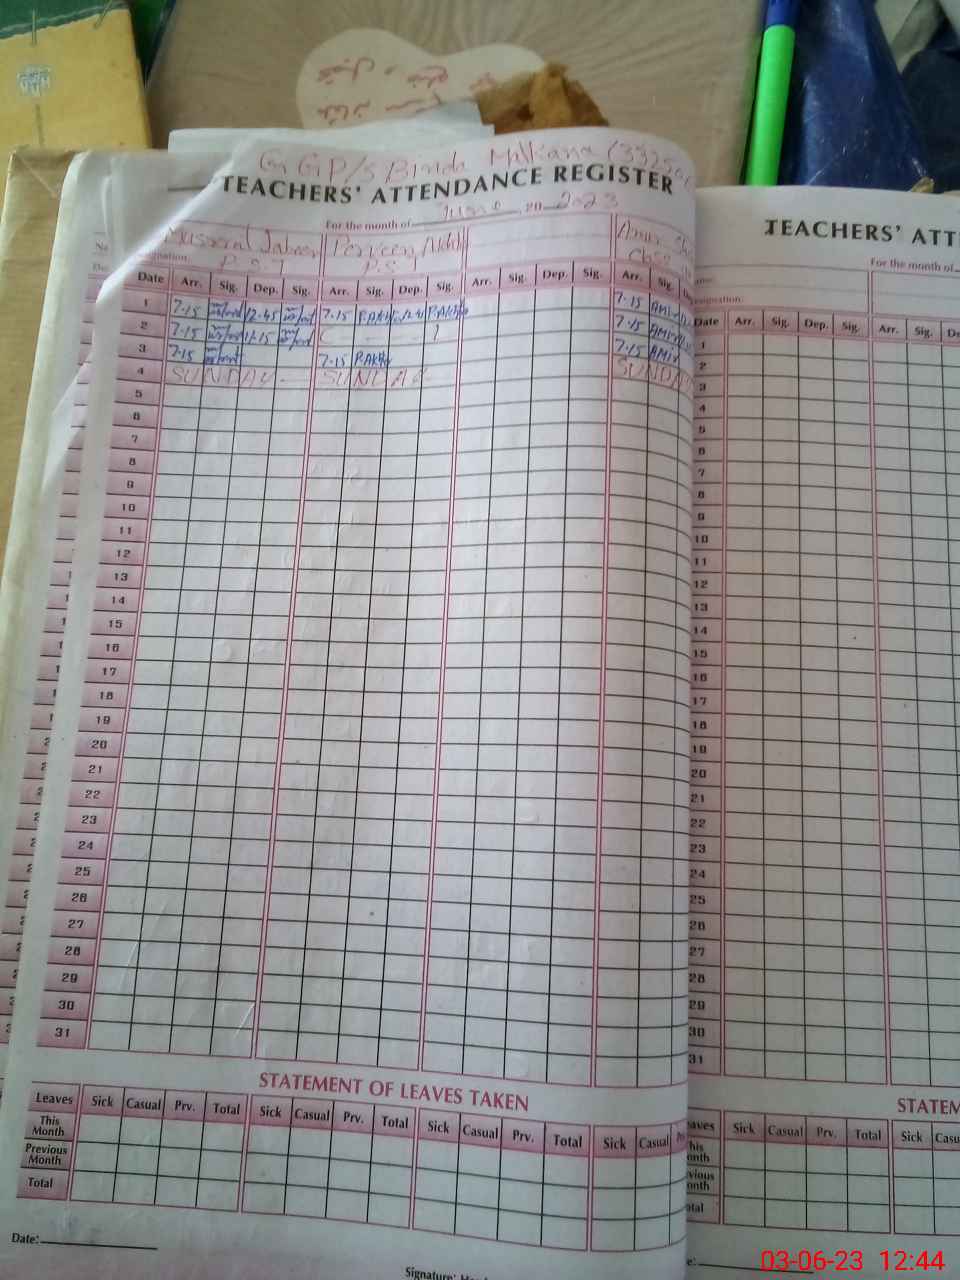 G GP/S Binda Malkana
TEACHERS' ATTENDANCE REGISTER
For the month of June 20 2023
Musarrat Jabeen Perveen Akhtar
P.S.T P.S.T
Date Arr. Sig. Dep. Sig. Arr. Sig. Dep. Sig. Arr. Sig. Dep. Sig. Arr. Sig.
1 7-15 12-45 7-15 P.Akhtar P.Akhtar 7-15
2 7-15 7-15
3 7-15 7-15 P.Akhtar 7-15
4 SUNDAY SUNDAY SUNDAY
5
6
7
8
9
10
11
12
13
14
15
16
17
18
19
20
21
22
23
24
25
26
27
28
29
30
31
STATEMENT OF LEAVES TAKEN
Leaves Sick Casual Prv. Total Sick Casual Prv. Total Sick Casual Prv. Total Sick Casual
This Month
Previous Month
Total
Date:
Signature:
TEACHERS' ATT
For the month of
Date Arr. Sig. Dep. Sig. Arr. Sig. De
1
2
3
4
5
6
7
8
9
10
11
12
13
14
15
16
17
18
19
20
21
22
23
24
25
26
27
28
29
30
31
STATEM
Sick Casual Prv. Total Sick Casu
03-06-23 12:44